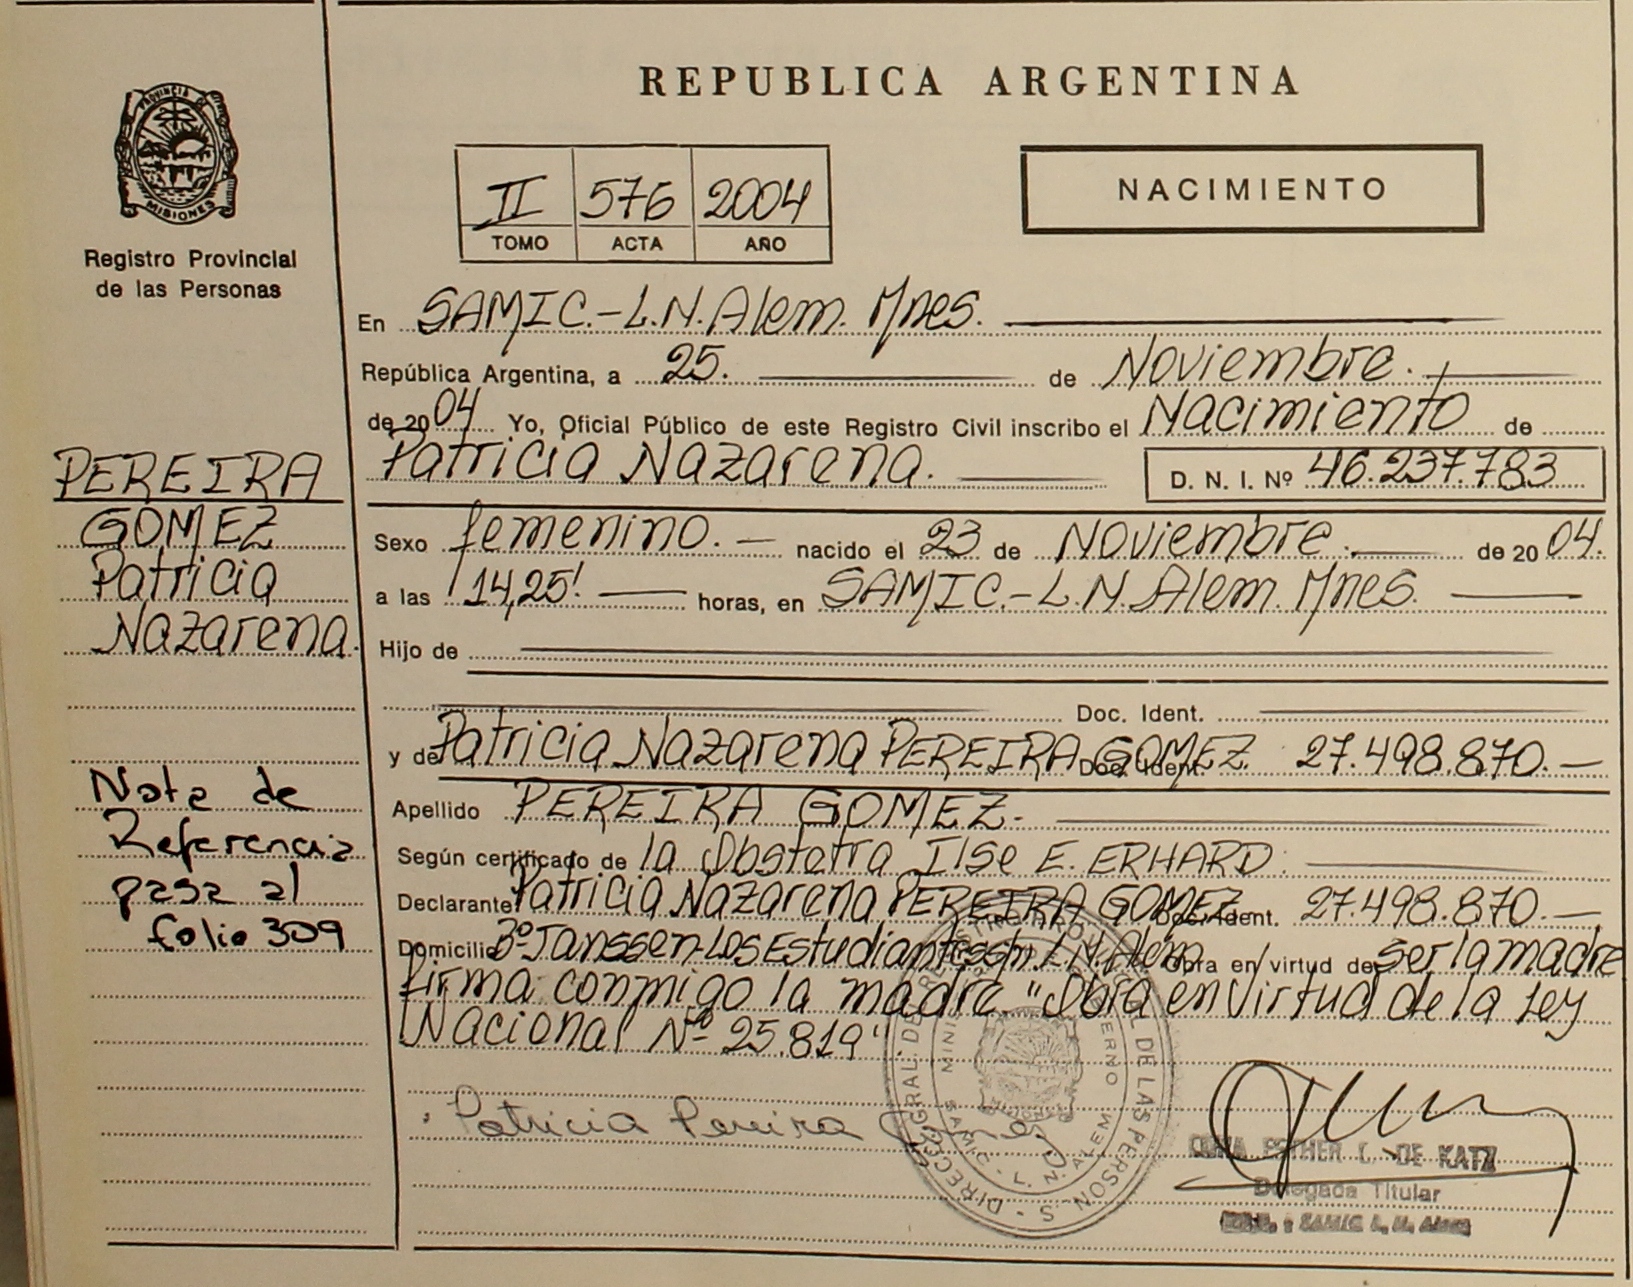 REPUBLICA ARGENTINA
PROVINCIA DE
MISIONES
Registro Provincial
de las Personas
II 576 2004
TOMO ACTA AÑO
NACIMIENTO
En SAMIC.-L.N.Alem. Mnes.
República Argentina, a 25. de Noviembre.
de 2004 Yo, Oficial Público de este Registro Civil inscribo el Nacimiento de
Patricia Nazarena. D. N. I. Nº 46.237.783
PEREIRA
GOMEZ
Patricia
Nazarena.
Sexo femenino. nacido el 23 de Noviembre. de 2004.
a las 14,25' horas, en SAMIC.-L.N.Alem. Mnes.
Hijo de
Doc. Ident.
y de Patricia Nazarena PEREIRA GOMEZ Doc. Ident. 27.498.870.-
Apellido PEREIRA GOMEZ.-
Según certificado de la Obstetra Ilse E. ERHARD.
Declarante Patricia Nazarena PEREIRA GOMEZ Doc. Ident. 27.498.870.-
Domicilio Bº Janssen-Los Estudiantes L.N.Alem Obra en virtud de ser la madre
firma conmigo la madre "Obra en virtud de la Ley
Nacional Nº 25.819".
Nota de
Referencia
pasa al
folio 309
Patricia Pereira Gomez
DE LAS PERSONAS
SAMIC - L. N. ALEM
ESTHER L. DE KATZ
Delegada Titular
SAMIC L. N. Alem